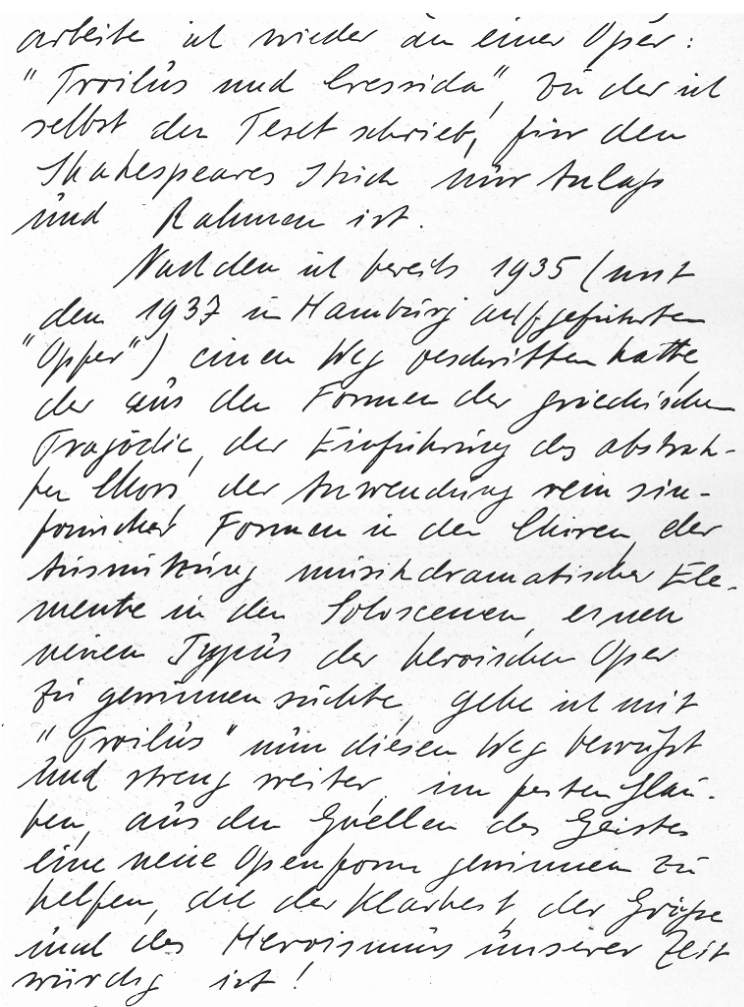 arbeite ich wieder an einer Oper:
"Troilus und Cressida", zu der ich
selbst den Text schrieb, für den
Shakespeares Stück nur Anlaß
und Rahmen ist.
Nachdem ich bereits 1935 (mit
dem 1937 in Hamburg aufgeführten
"Opfer") einen Weg beschritten hatte,
der aus den Formen der griechischen
Tragödie, der Einführung des abstrak-
ten Chors, der Anwendung rein sin-
fonischer Formen in den Chören, der
Ausnützung musikdramatischer Ele-
mente in den Soloscenen, einen
neuen Typus der heroischen Oper
zu gewinnen suchte, gehe ich mit
"Troilus" nun diesen Weg bewußt
und streng weiter, im festen Glau-
ben, aus den Quellen des Geistes
eine neue Opernform gewinnen zu
helfen, die der Klarheit, der Größe
und des Heroismus unserer Zeit
würdig ist!